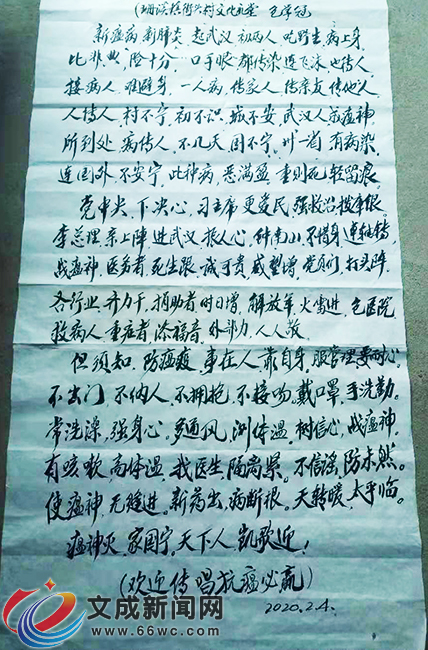 (珊溪桂街兴村文化礼堂 包学冠
新瘟病,新肺炎,起武汉,初两人,吃野生,病上身,
比非典,险十分,口手眼,都传染,连飞沫,也传人,
接病人,难避身,一人病,传家人,传亲友,传他人,
人传人,村不宁,初不识,城不安,武汉人,成瘟神,
所到处,病传人,不几天,国不宁,卅一省,有病染,
连国外,不安宁,此神病,恶满盈,重则死,轻留痕。
党中央,下决心,习主席,更爱民,强救治,
李总理,亲上阵,进武汉,振人心,钟南山,不惜身,
战瘟神,医多者,死生跟,诚可贵,威望增,党员们,打头阵,
各行业,齐力干,捐助者,时日增,解放军,火雷进,包医院,
救病人,重症者,添福音,外部力,人人敬,
但须知,防瘟疫,事在人,靠自身,服管理,要耐心,
不出门,不纳人,不拥抱,不接吻,戴口罩,手洗勤。
常洗澡,强身心。多通风,测体温,树信心,战瘟神,
有咳嗽,高体温,找医生,隔离景。不信谣,防未然。
使瘟神,无缝进。新药出,病断根。天转暖,太平临。
瘟神灭,家国宁,天下人,凯歌迎!
(欢迎传唱抗瘟必赢)
2020.2.4.
文成新闻网
www.66wc.com